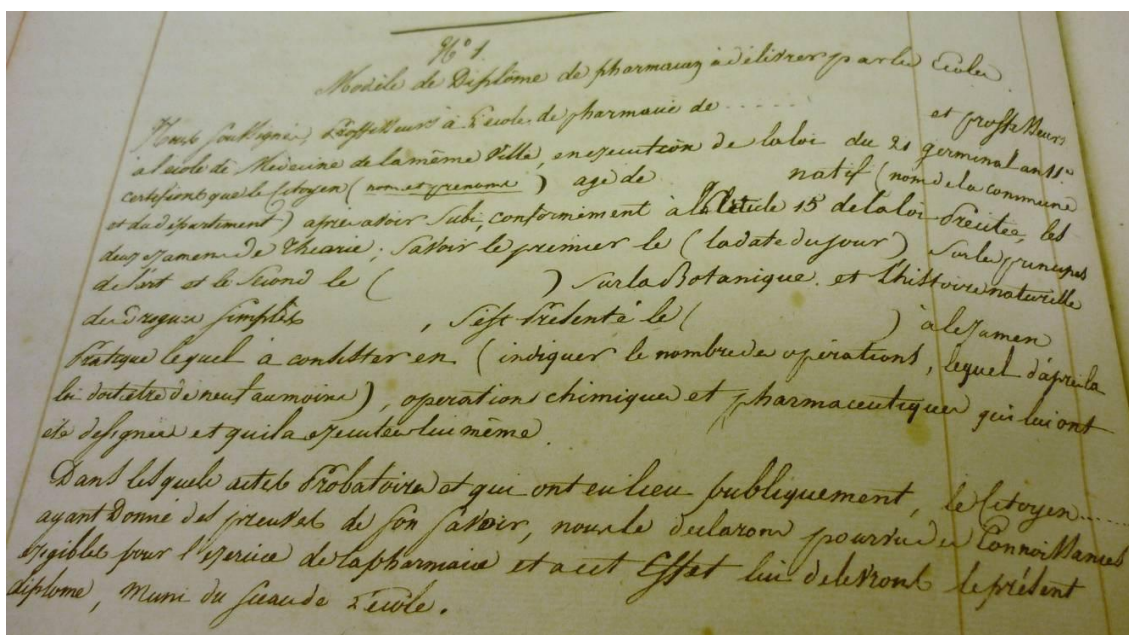 N.° 1.
Modèle de Diplôme de pharmacien à délivrer par les Ecoles
Nous soussignés, Professeurs à L'école de pharmacie de ....... et professeurs
à l'école de Médecine de la même Ville, en execution de la loi du 21 germinal an 11.e
certifions que le Citoyen (nom et prenoms) agé de natif (nom de la commune
et du département) après avoir subi, conformément à l'Article 15 de la loi Précitée, les
deux examens de Théorie; savoir le premier le (la date du jour) sur les principes
de l'art et le second le ( ) sur la Botanique et l'histoire naturelle
des Drogues simples , s'est Présenté le ( ) à l'examen
Pratique lequel à consister en (indiquer le nombre des opérations, lequel d'après la
loi doit etre de neuf au moins), operations chimiques et pharmaceutiques qui lui ont
été designées et qu'il a executées lui même.
Dans lesquels actes Probatoires et qui ont eu lieu publiquement, le Citoyen ......
ayant Donné des preuves de son savoir, nous le declarons pourvu des Connoissances
exigibles pour l'exercice de la pharmacie et a cet Effet lui delivrons le présent
diplome, Muni du sceau de L'école.